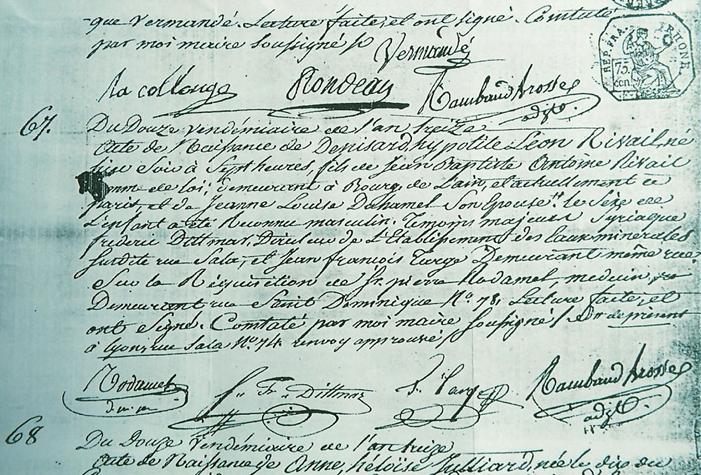 que Vermandé. Lecture faite, et ont signé. Constaté
par moi maire soussigné
Vermandé
la collonge Rondeau Rambaud Brosse
adjt.
REP. FRA. RHONE
75
cen.
67.
Du Douze Vendémiaire de l'an treize
Acte de Naissance de Denisard, hypolite Léon Rivail, né
hier Soir à Sept heures, fils de Jean Baptiste Antoine Rivail
homme de loi, demeurant à Bourg, de l'ain, et actuellement à
paris, et de Jeanne Louise Duhamel Son épouse, le Sexe de
L'enfant a été Reconnu masculin. Témoins majeurs Syriaque
fréderic Dittmar, Directeur de L'Etablissement des Eaux minérales
susdite rue Sala, et Jean François Targe Demeurant même rue
Sur la Réquisition de Sr. pierre Rodamel, médecin
Demeurant rue Saint Dominique No. 78, Lecture faite, et
ont Signé. Constaté par moi maire Soussigné
à Lyon, rue Sala No. 74 renvoy approuvé
Rodamel Fr. Dittmar Targe Rambaud Brosse
d. m. m. adjt.
68
Du Douze Vendémiaire de l'an treize
Acte de Naissance de Anne, héloïse Julliard, née le dix du